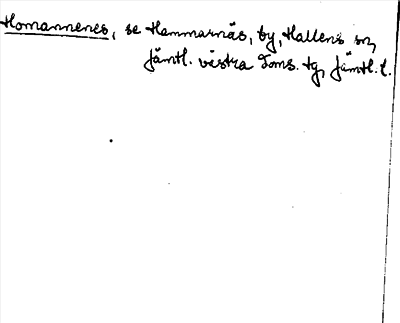 Homannenes, se Hammarnäs, by, Hallens sn,
Jämtl. västra doms. tg, Jämtl. l.